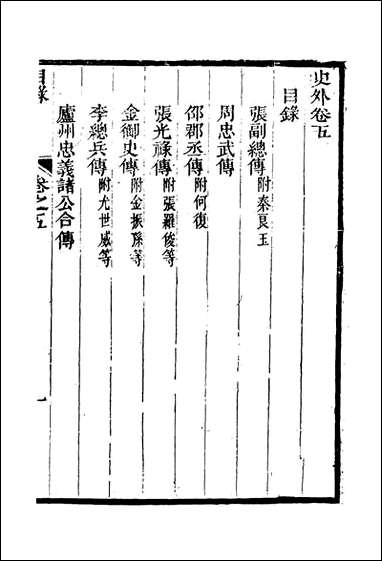 史外卷五
目錄
張副總傳附秦良玉
周忠武傳
邵郡丞傳附何復
張光祿傳附張羅俊等
金御史傳附金振孫等
李總兵傳附尤世威等
廬州忠義諸公合傳
目錄 卷之五 一